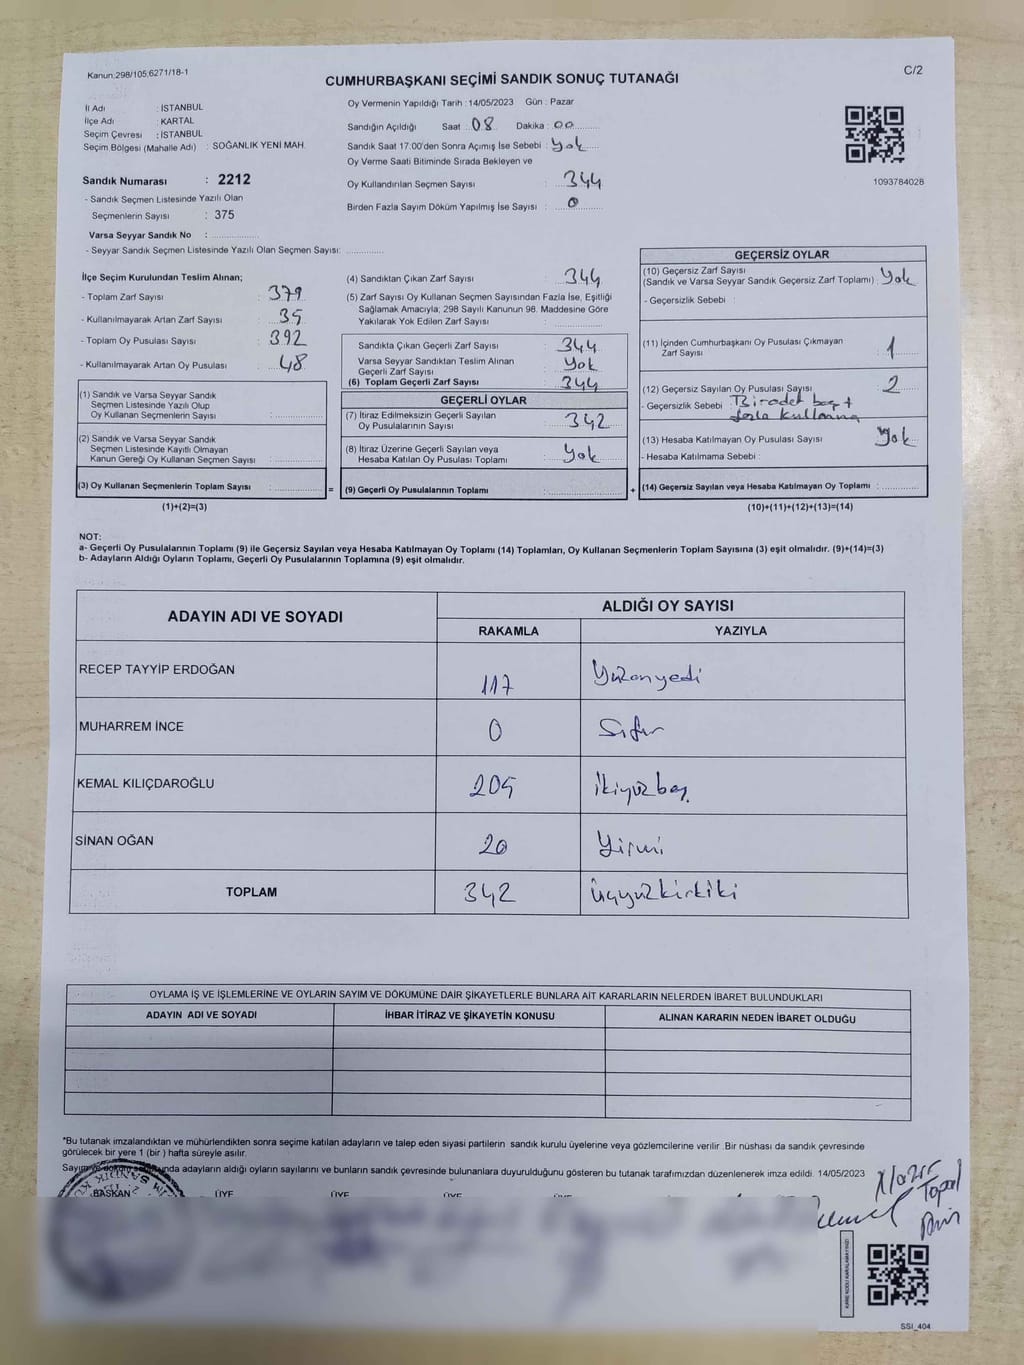 Kanun.298/105,6271/18-1
C/2
CUMHURBAŞKANI SEÇİMİ SANDIK SONUÇ TUTANAĞI
İl Adı : İSTANBUL
İlçe Adı : KARTAL
Seçim Çevresi : İSTANBUL
Seçim Bölgesi (Mahalle Adı) : SOĞANLIK YENİ MAH.
Sandık Numarası : 2212
- Sandık Seçmen Listesinde Yazılı Olan
Seçmenlerin Sayısı : 375
Varsa Seyyar Sandık No :
- Seyyar Sandık Seçmen Listesinde Yazılı Olan Seçmen Sayısı:
Oy Vermenin Yapıldığı Tarih : 14/05/2023 Gün : Pazar
Sandığın Açıldığı Saat : 08 Dakika : 00
Sandık Saat 17.00'den Sonra Açımış İse Sebebi : Yok
Oy Verme Saati Bitiminde Sırada Bekleyen ve
Oy Kullandırılan Seçmen Sayısı : 344
Birden Fazla Sayım Döküm Yapılmış İse Sayısı : 0
1093784028
İlçe Seçim Kurulundan Teslim Alınan;
- Toplam Zarf Sayısı : 379
- Kullanılmayarak Artan Zarf Sayısı : 35
- Toplam Oy Pusulası Sayısı : 392
- Kullanılmayarak Artan Oy Pusulası : 48
(1) Sandık ve Varsa Seyyar Sandık
Seçmen Listesinde Yazılı Olup
Oy Kullanan Seçmenlerin Sayısı :
(2) Sandık ve Varsa Seyyar Sandık
Seçmen Listesinde Kayıtlı Olmayan
Kanun Gereği Oy Kullanan Seçmen Sayısı :
(3) Oy Kullanan Seçmenlerin Toplam Sayısı :
(1)+(2)=(3)
(4) Sandıktan Çıkan Zarf Sayısı : 344
(5) Zarf Sayısı Oy Kullanan Seçmen Sayısından Fazla İse, Eşitliği
Sağlamak Amacıyla; 298 Sayılı Kanunun 98. Maddesine Göre
Yakılarak Yok Edilen Zarf Sayısı :
Sandıkta Çıkan Geçerli Zarf Sayısı : 344
Varsa Seyyar Sandıktan Teslim Alınan
Geçerli Zarf Sayısı : Yok
(6) Toplam Geçerli Zarf Sayısı : 344
GEÇERLİ OYLAR
(7) İtiraz Edilmeksizin Geçerli Sayılan
Oy Pusulalarının Sayısı : 342
(8) İtiraz Üzerine Geçerli Sayılan veya
Hesaba Katılan Oy Pusulası Toplamı : Yok
= (9) Geçerli Oy Pusulalarının Toplamı :
GEÇERSİZ OYLAR
(10) Geçersiz Zarf Sayısı
(Sandık ve Varsa Seyyar Sandık Geçersiz Zarf Toplamı) : Yok
- Geçersizlik Sebebi :
(11) İçinden Cumhurbaşkanı Oy Pusulası Çıkmayan
Zarf Sayısı : 1
(12) Geçersiz Sayılan Oy Pusulası Sayısı : 2
- Geçersizlik Sebebi : Bir adet boş +
fazla kullanma
(13) Hesaba Katılmayan Oy Pusulası Sayısı : Yok
- Hesaba Katılmama Sebebi :
+ (14) Geçersiz Sayılan veya Hesaba Katılmayan Oy Toplamı :
(10)+(11)+(12)+(13)=(14)
NOT:
a- Geçerli Oy Pusulalarının Toplamı (9) ile Geçersiz Sayılan veya Hesaba Katılmayan Oy Toplamı (14) Toplamları, Oy Kullanan Seçmenlerin Toplam Sayısına (3) eşit olmalıdır. (9)+(14)=(3)
b- Adayların Aldığı Oyların Toplamı, Geçerli Oy Pusulalarının Toplamına (9) eşit olmalıdır.
ADAYIN ADI VE SOYADI
ALDIĞI OY SAYISI
RAKAMLA YAZIYLA
RECEP TAYYİP ERDOĞAN 117 Yüzonyedi
MUHARREM İNCE 0 Sıfır
KEMAL KILIÇDAROĞLU 205 İkiyüzbeş
SİNAN OĞAN 20 Yirmi
TOPLAM 342 Üçyüzkırkiki
OYLAMA İŞ VE İŞLEMLERİNE VE OYLARIN SAYIM VE DÖKÜMÜNE DAİR ŞİKAYETLERLE BUNLARA AİT KARARLARIN NELERDEN İBARET BULUNDUKLARI
ADAYIN ADI VE SOYADI İHBAR İTİRAZ VE ŞİKAYETİN KONUSU ALINAN KARARIN NEDEN İBARET OLDUĞU
*Bu tutanak imzalandıktan ve mühürlendikten sonra seçime katılan adayların ve talep eden siyasi partilerin sandık kurulu üyelerine veya gözlemcilerine verilir .Bir nüshası da sandık çevresinde
görülecek bir yere 1 (bir ) hafta süreyle asılır.
adayların aldığı oyların sayılarını ve bunların sandık çevresinde bulunanlara duyurulduğunu gösteren bu tutanak tarafımızdan düzenlenerek imza edildi. 14/05/2023
BAŞKAN ÜYE ÜYE ÜYE ÜYE
KARE KODU KARALAMAYINIZ!
SSİ_404